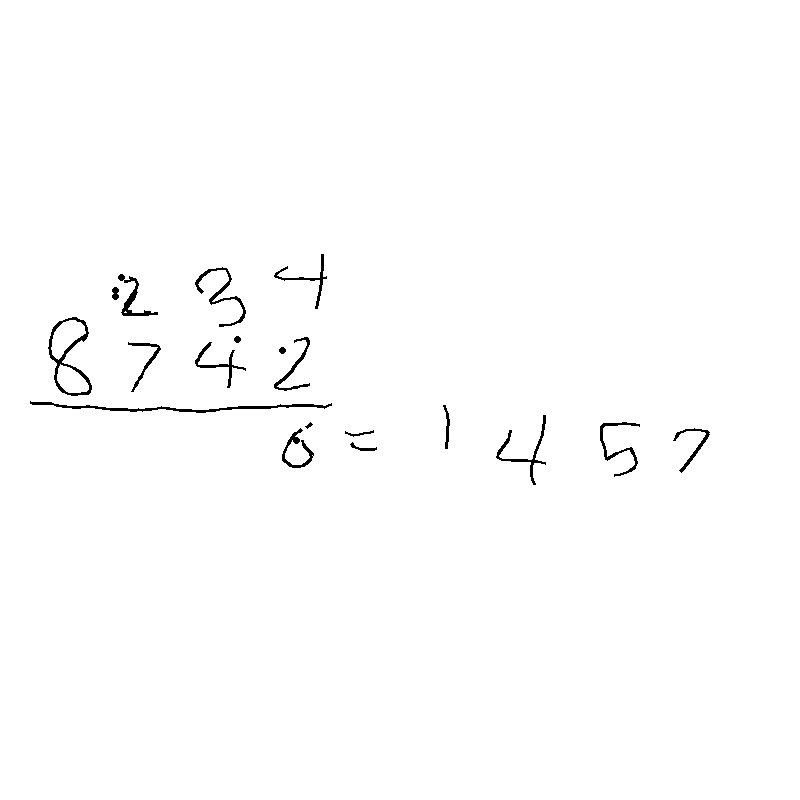 234
8742
6 = 1457